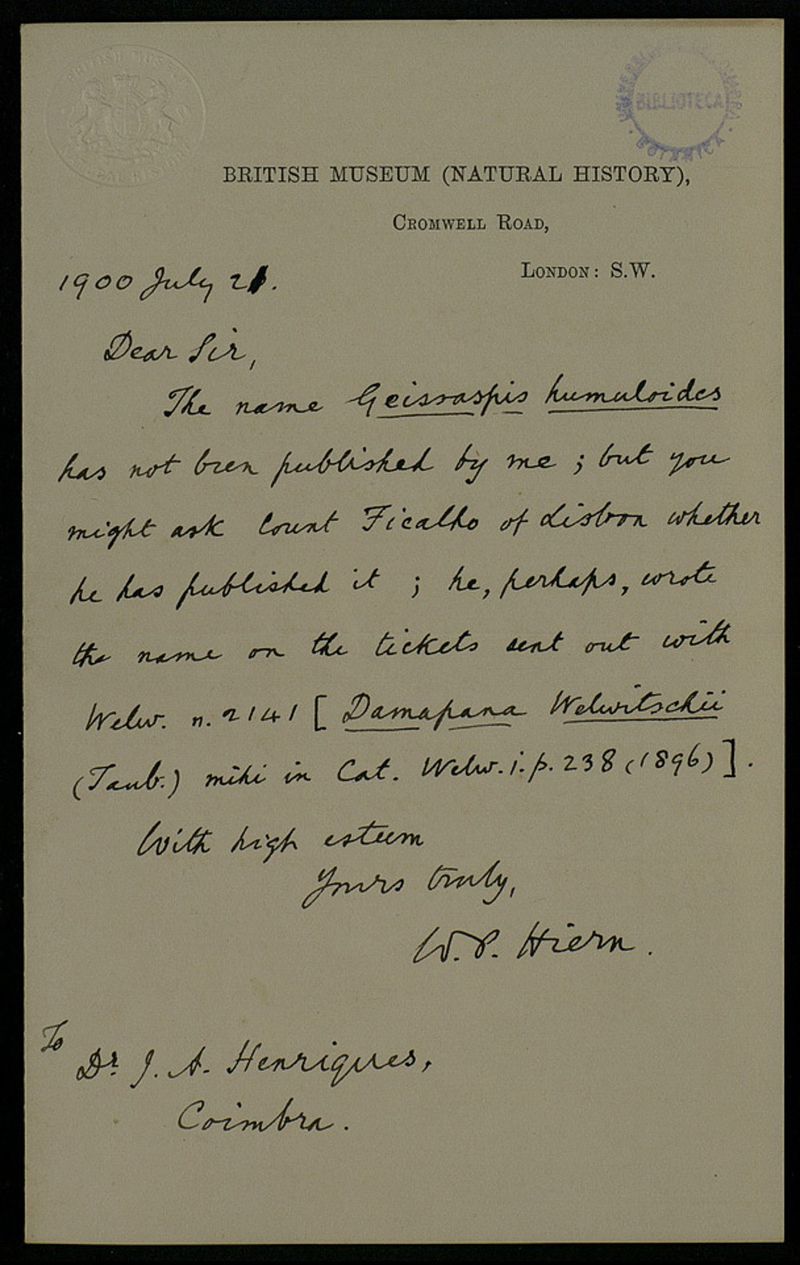 BRITISH MUSEUM
UNIVERSIDADE DE COIMBRA
BIBLIOTECA
BOTANICA
BRITISH MUSEUM (NATURAL HISTORY),
CROMWELL ROAD,
LONDON: S.W.
1900 July 21.
Dear Sir,
The name Geissaspis humuloides
has not been published by me; but you
might ask Count Ficalho of Lisbon whether
he has published it; he, perhaps, wrote
the name on the tickets sent out with
Welw. n. 2141 [Damapana Welwitschii
(Taub.) mihi in Cat. Welw. i. p. 238 (1896)].
With high esteem
Yours truly,
W. P. Hiern.
To
Dr. J. A. Henriques,
Coimbra.